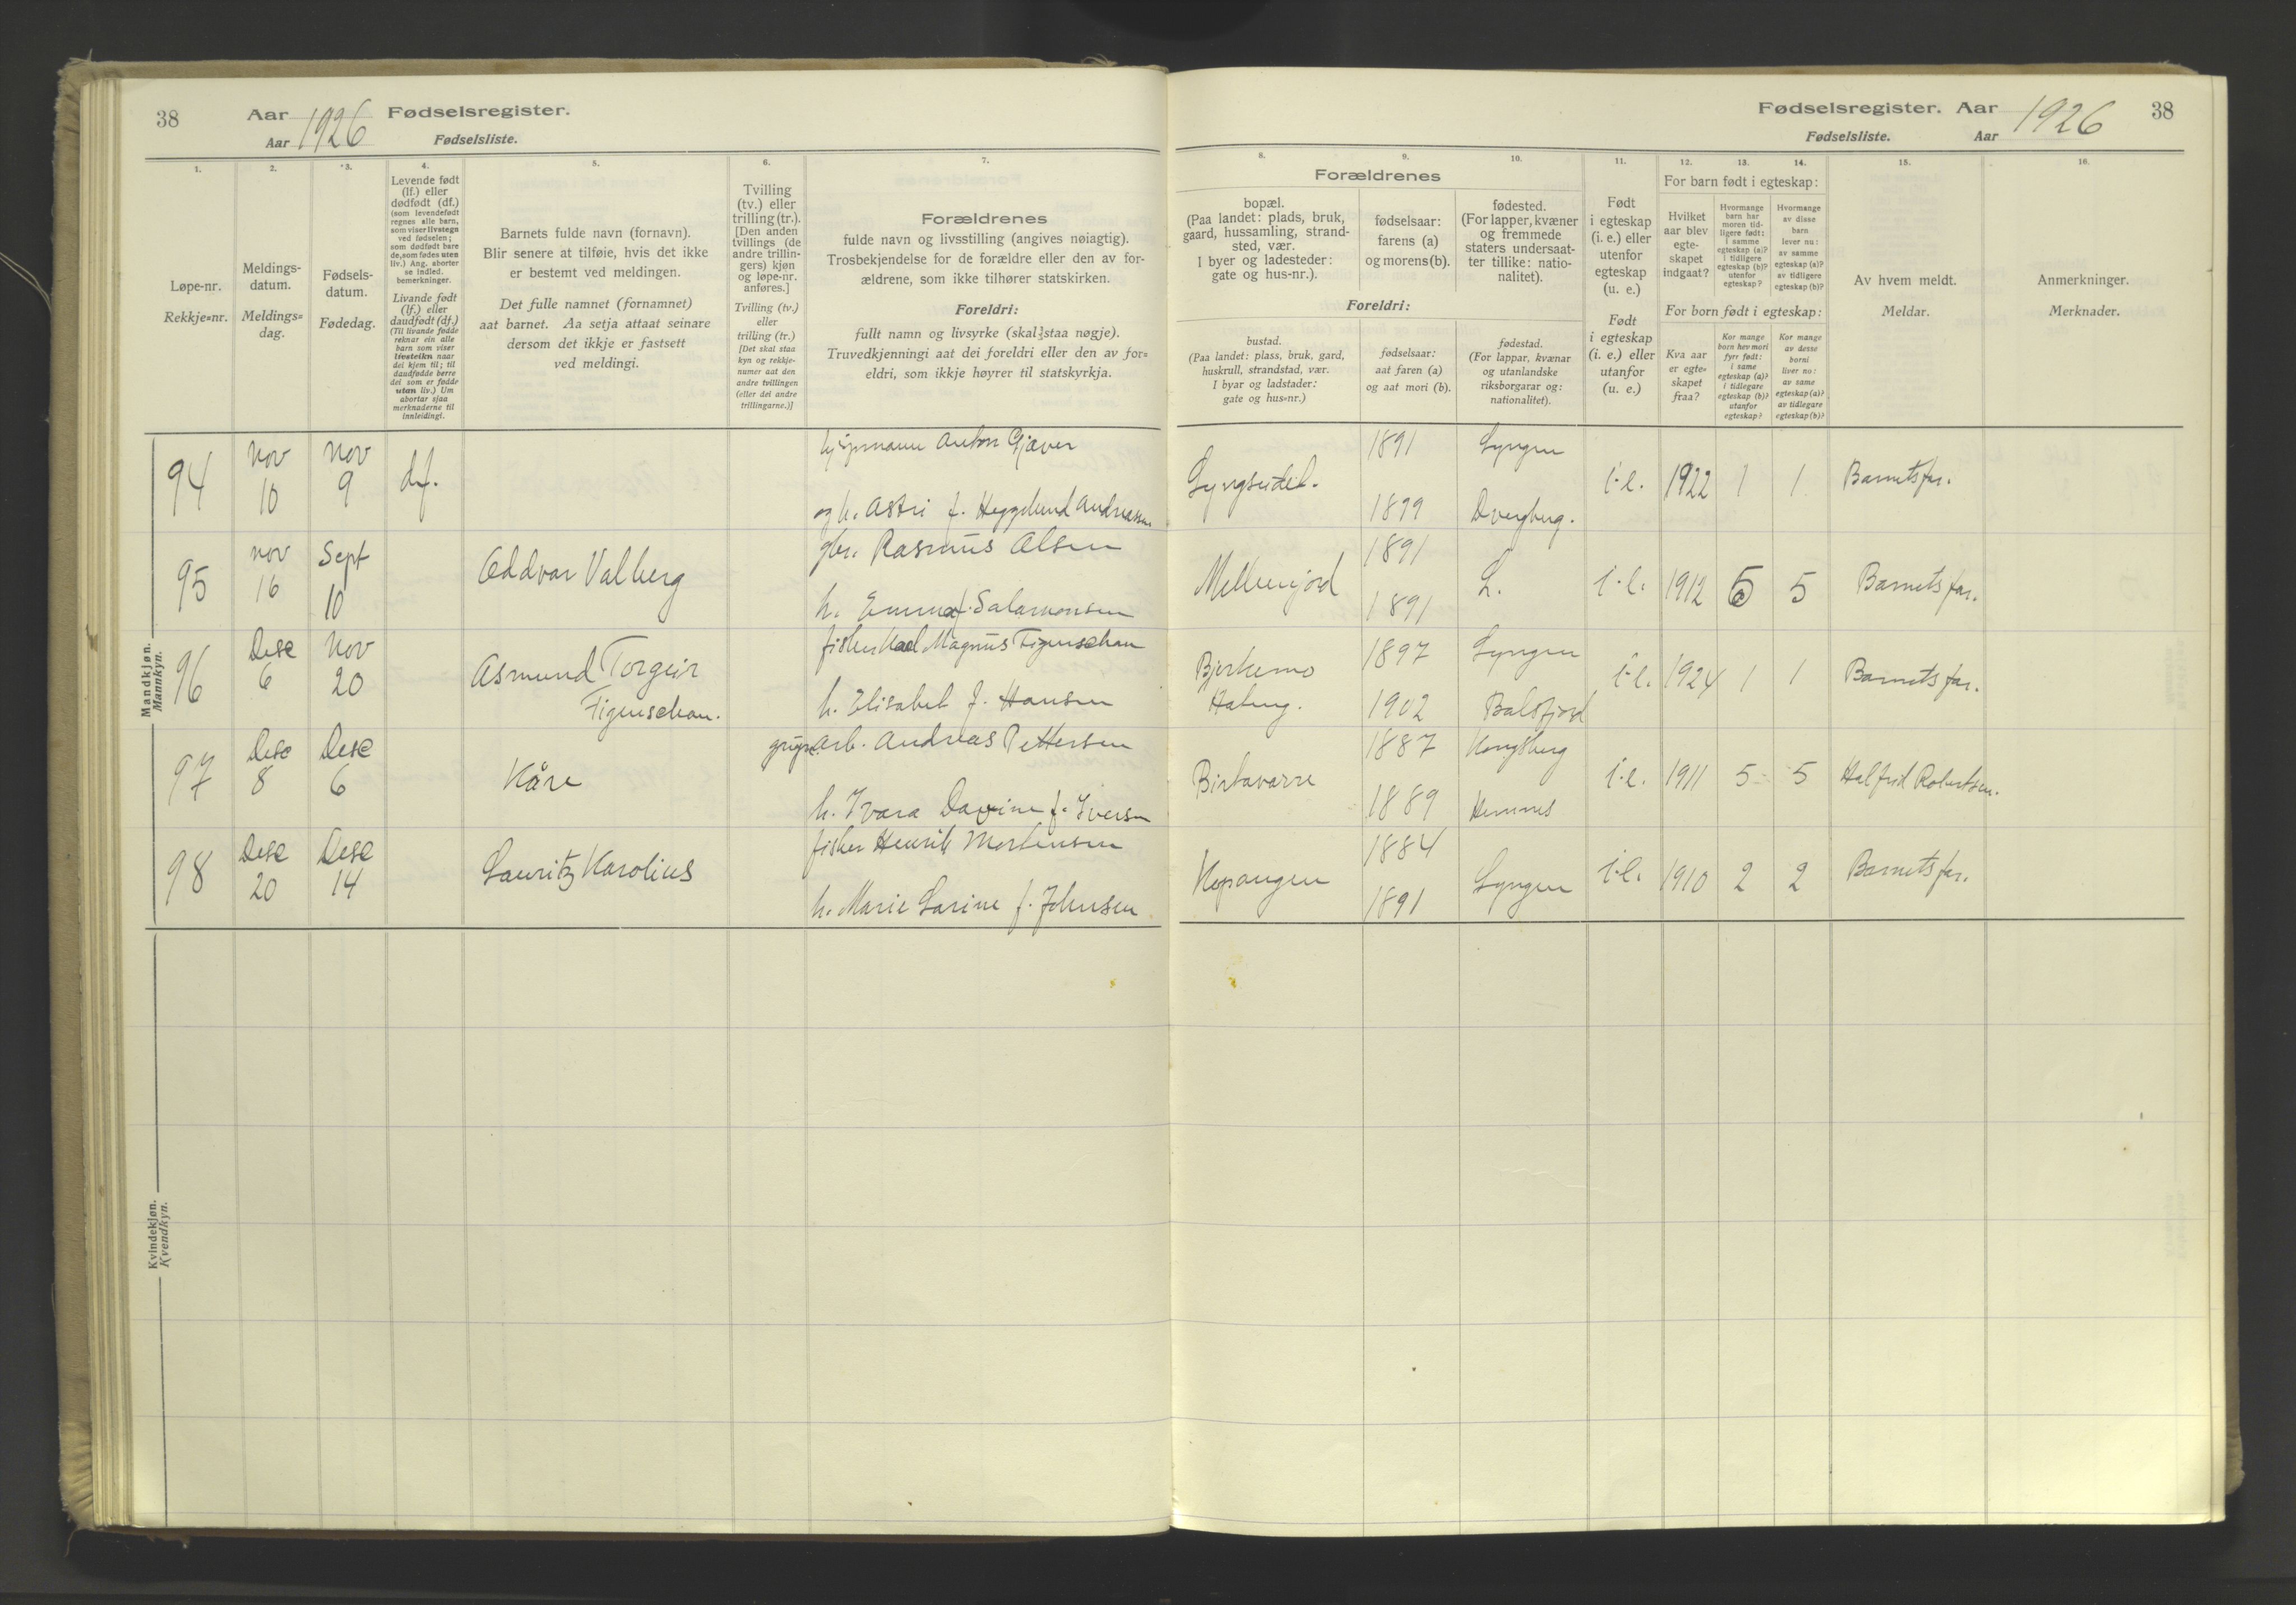 38 Aar 1926 Fødselsregister.
Aar Fødselsliste.
1. 2. 3. 4. 5. 6. 7.
Løpe-nr.
Rekkje=nr.
Meldings-
datum.
Meldings=
dag.
Fødsels-
datum.
Fødedag.
Levende født
(lf.) eller
dødfødt (df.)
(som levendefødt
regnes alle barn,
som viser livstegn
ved fødselen;
som dødfødt bare
de, som fødes uten
liv.) Ang. aborter
se indled.
bemerkninger.
Livande født
(lf.) eller
daudfødt (df.)
(Til livande fødde
reknar ein alle
barn som viser
livsteikn naar
dei kjem til; til
daudfødde berre
dei som er fødde
utan liv.) Um
abortar sjaa
merknaderne til
innleidingi.
Barnets fulde navn (fornavn).
Blir senere at tilføie, hvis det ikke
er bestemt ved meldingen.
Det fulle namnet (fornamnet)
aat barnet. Aa setja attaat seinare
dersom det ikkje er fastsett
ved meldingi.
Tvilling
(tv.) eller
trilling (tr.).
[Den anden
tvillings (de
andre trillin-
gers) kjøn
og løpe-nr.
anføres.]
Tvilling (tv.)
eller
trilling (tr.)
[Det skal staa
kyn og rekkje-
numer aat den
andre tvillingen
(eller dei andre
trillingarne.)]
Forældrenes
fulde navn og livsstilling (angives nøiagtig).
Trosbekjendelse for de forældre eller den av for-
ældrene, som ikke tilhører statskirken.
Foreldri:
fullt namn og livsyrke (skal staa nøgje).
Truvedkjenningi aat dei foreldri eller den av for=
eldri, som ikkje høyrer til statskyrkja.
Mandkjøn.
Mannkyn.
94 Nov 10 Nov 9 df.
Anton Gjæver
og h. Astri f. Heggelund Andreassen
95 Nov 16 Sept 10 Oddvar Valberg
gbr. Rasmus Olsen
h. Emma f. Salamonsen
96 Dese 6 Nov 20 Asmund Torgeir
Figenschau.
fisker Karl Magnus Figenschau
h. Elisabet f. Hansen
97 Dese 8 Dese 6 Kåre
arb. Andreas Pettersen
h. Ivara Davine f. Iversen
98 Dese 20 Dese 14 Lauritz Karolius
fisker Henrik Mortensen
h. Marie Larine f. Johnsen
Kvindekjøn.
Kvendkyn.
Fødselsregister. Aar 1926 38
Fødselsliste. Aar
8. 9. 10. 11. 12. 13. 14. 15. 16.
Forældrenes
bopæl.
(Paa landet: plads, bruk,
gaard, hussamling, strand-
sted, vær.
I byer og ladesteder:
gate og hus-nr.).
fødselsaar:
farens (a)
og morens (b).
fødested.
(For lapper, kvæner
og fremmede
staters undersaat-
ter tillike: natio-
nalitet).
Foreldri:
bustad.
(Paa landet: plass, bruk, gard,
huskrull, strandstad, vær.
I byar og ladstader:
gate og hus=nr.)
fødselsaar:
aat faren (a)
og aat mori (b).
fødestad.
(For lappar, kvænar
og utanlandske
riksborgarar og:
nationalitet).
Født
i egteskap
(i. e.) eller
utenfor
egteskap
(u. e.)
Født
i egteskap
(i. e.) eller
utanfor
(u. e.)
For barn født i egteskap:
Hvilket
aar blev
egte-
skapet
indgaat?
Hvormange
barn har
moren tid-
ligere født:
i samme
egteskap (a)?
i tidligere
egteskap (b)?
utenfor
egteskap?
Hvormange
av disse
barn
lever nu:
av samme
egteskap (a)?
av tidligere
egteskap (b)?
For born født i egteskap:
Kva aar
er egte=
skapet
fraa?
Kor mange
born hev mori
fyrr født:
i same
egteskap (a)?
i tidlegare
egteskap (b)?
utanfor
egteskap?
Kor mange
av desse
borni
liver no:
av same
egteskap (a)?
av tidlegare
egteskap (b)?
Av hvem meldt.
Meldar.
Anmerkninger.
Merknader.
Lyngseidet. 1891 Lyngen
1899 Dvergberg. i.e. 1922 1 1 Barnets far.
1891
1891 L. i.e. 1912 5 5 Barnets far.
Bjørkemo 1897 Lyngen
1902 Balsfjord i.e. 1924 1 1 Barnets far.
Birtavarre 1887 Kongsberg
1889 Hemnes i.e. 1911 5 5 Halfrid Robertsen.
Kopangen 1884
1891 Lyngen i.e. 1910 2 2 Barnets far.